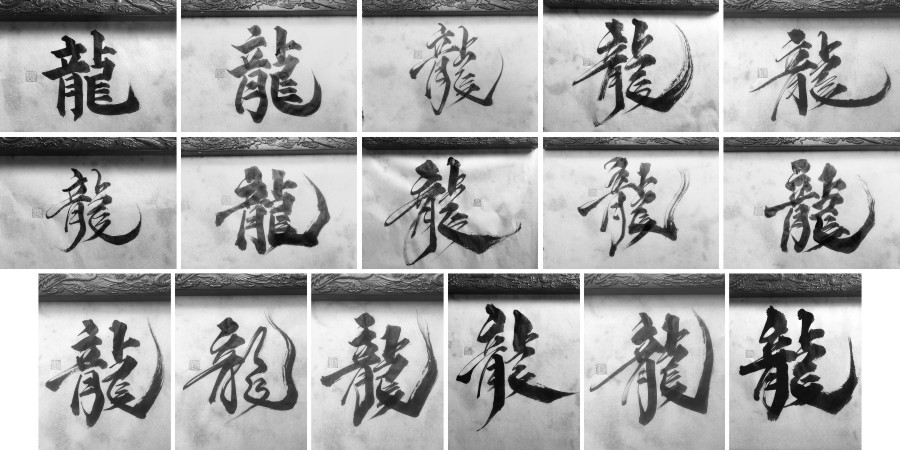 龍 龍 龍 龍 龍
龍 龍 龍 龍 龍
龍 龍 龍 龍 龍 龍